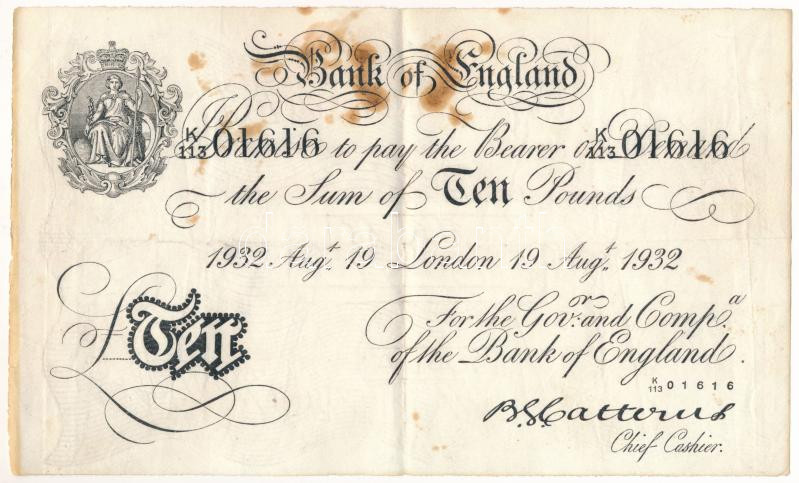 Bank of England
K/113 01616 K/113 01616
I Promise to pay the Bearer on Demand
the Sum of Ten Pounds
1932 Augt. 19 London 19 Augt. 1932
For the Govr. and Compa.
of the Bank of England.
£Ten
K/113 01616
B G Catterns
Chief Cashier.